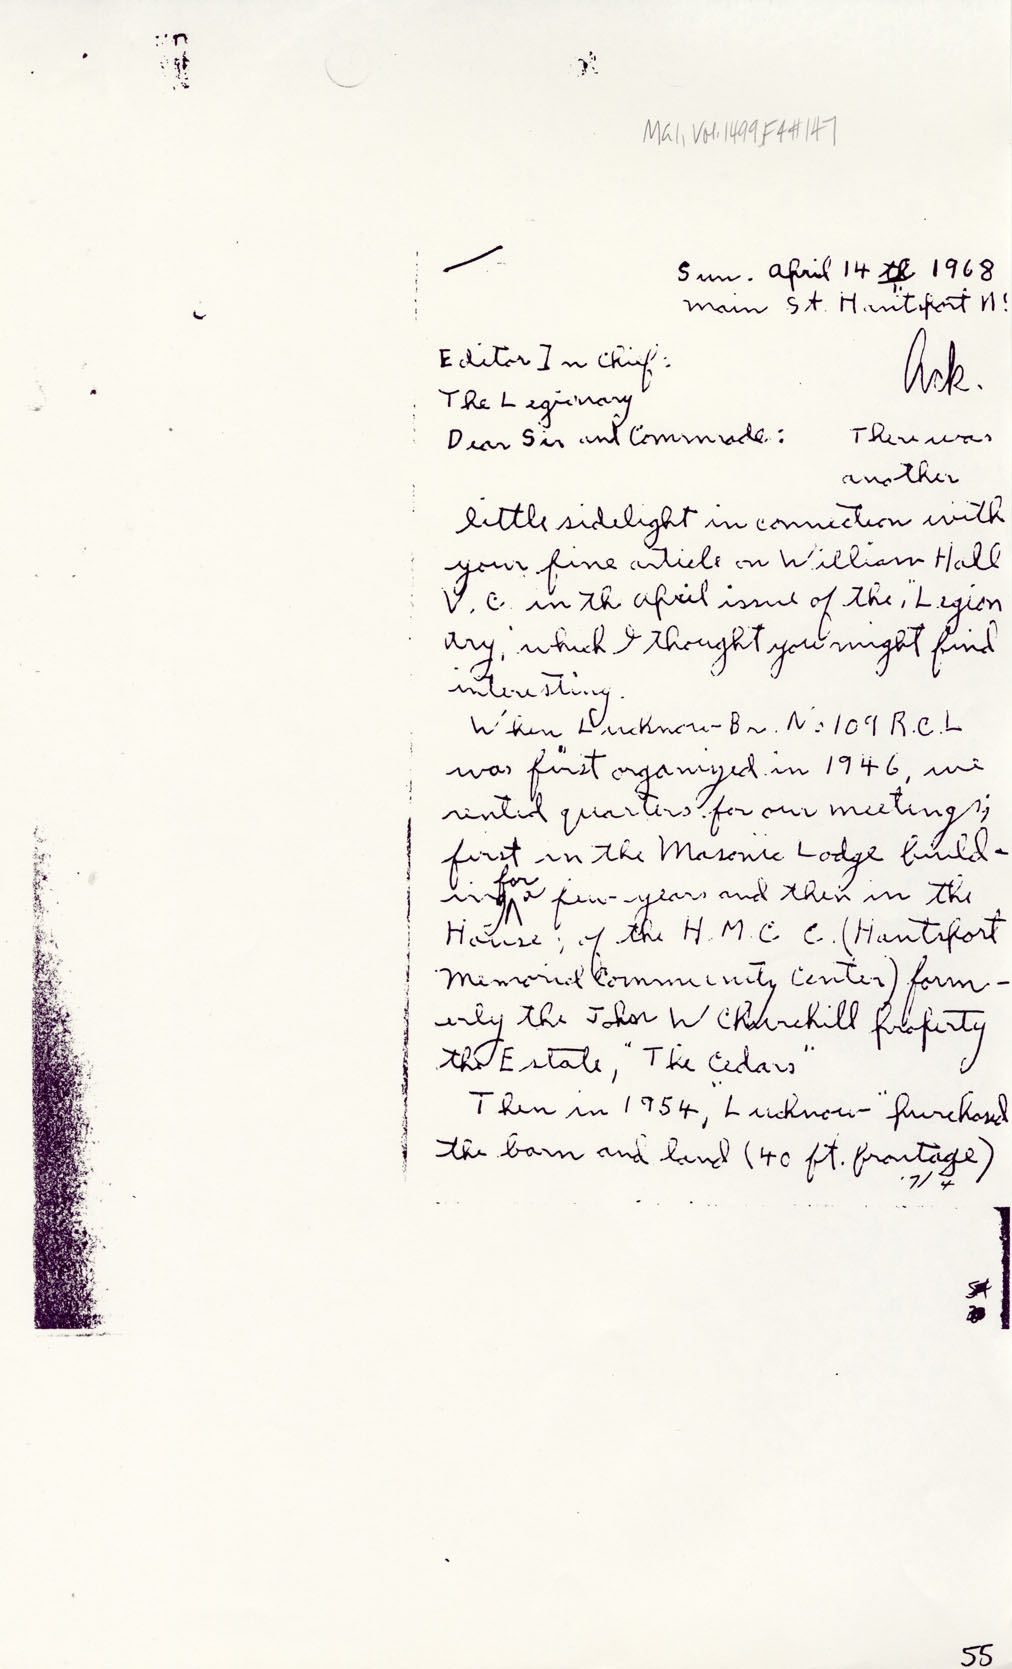 MG1, Vol. 1499, F4 #147
Sun. April 14 th 1968
Main St. Hantsport N.S
Editor In Chief:
Ack.
The Legionary
Dear Sir and Commrade: There was
another
little sidelight in connection with
your fine article on William Hall
V. C. in th April issue of the, "Legion
ary," which I thought you might find
interesting.
When Lucknow Br. No 109 R.C.L
was first organized in 1946, we
rented quarters for our meetings;
first in the Masonic Lodge build-
ing for a few years and then in the
House; of the H. M. C. C. (Hantsport
Memorial Community Center) form-
erly the John W Churchill property
the Estate, "The Cedars"
Then in 1954, "Lucknow" purchased
the barn and land (40 ft. frontage)
55